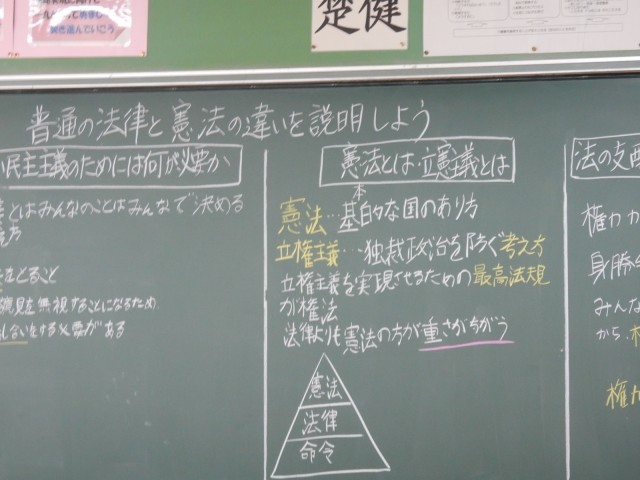 聞き進んでいこう
楚健
普通の法律と憲法の違いを説明しよう
民主主義のためには何が必要か
とはみんなのことはみんなで決める
え方
をとること
見を無視することになるため
ないをする必要がある
憲法とは・立憲主義とは
憲法…基本的な国のあり方
立権主義…独裁政治を防ぐ考え方
立権主義を実現させるための最高法規
が権法
法律よりも憲法の方が重さがちがう
憲法
法律
命令
法の支配
権力
身勝
みんな
から、権
権力